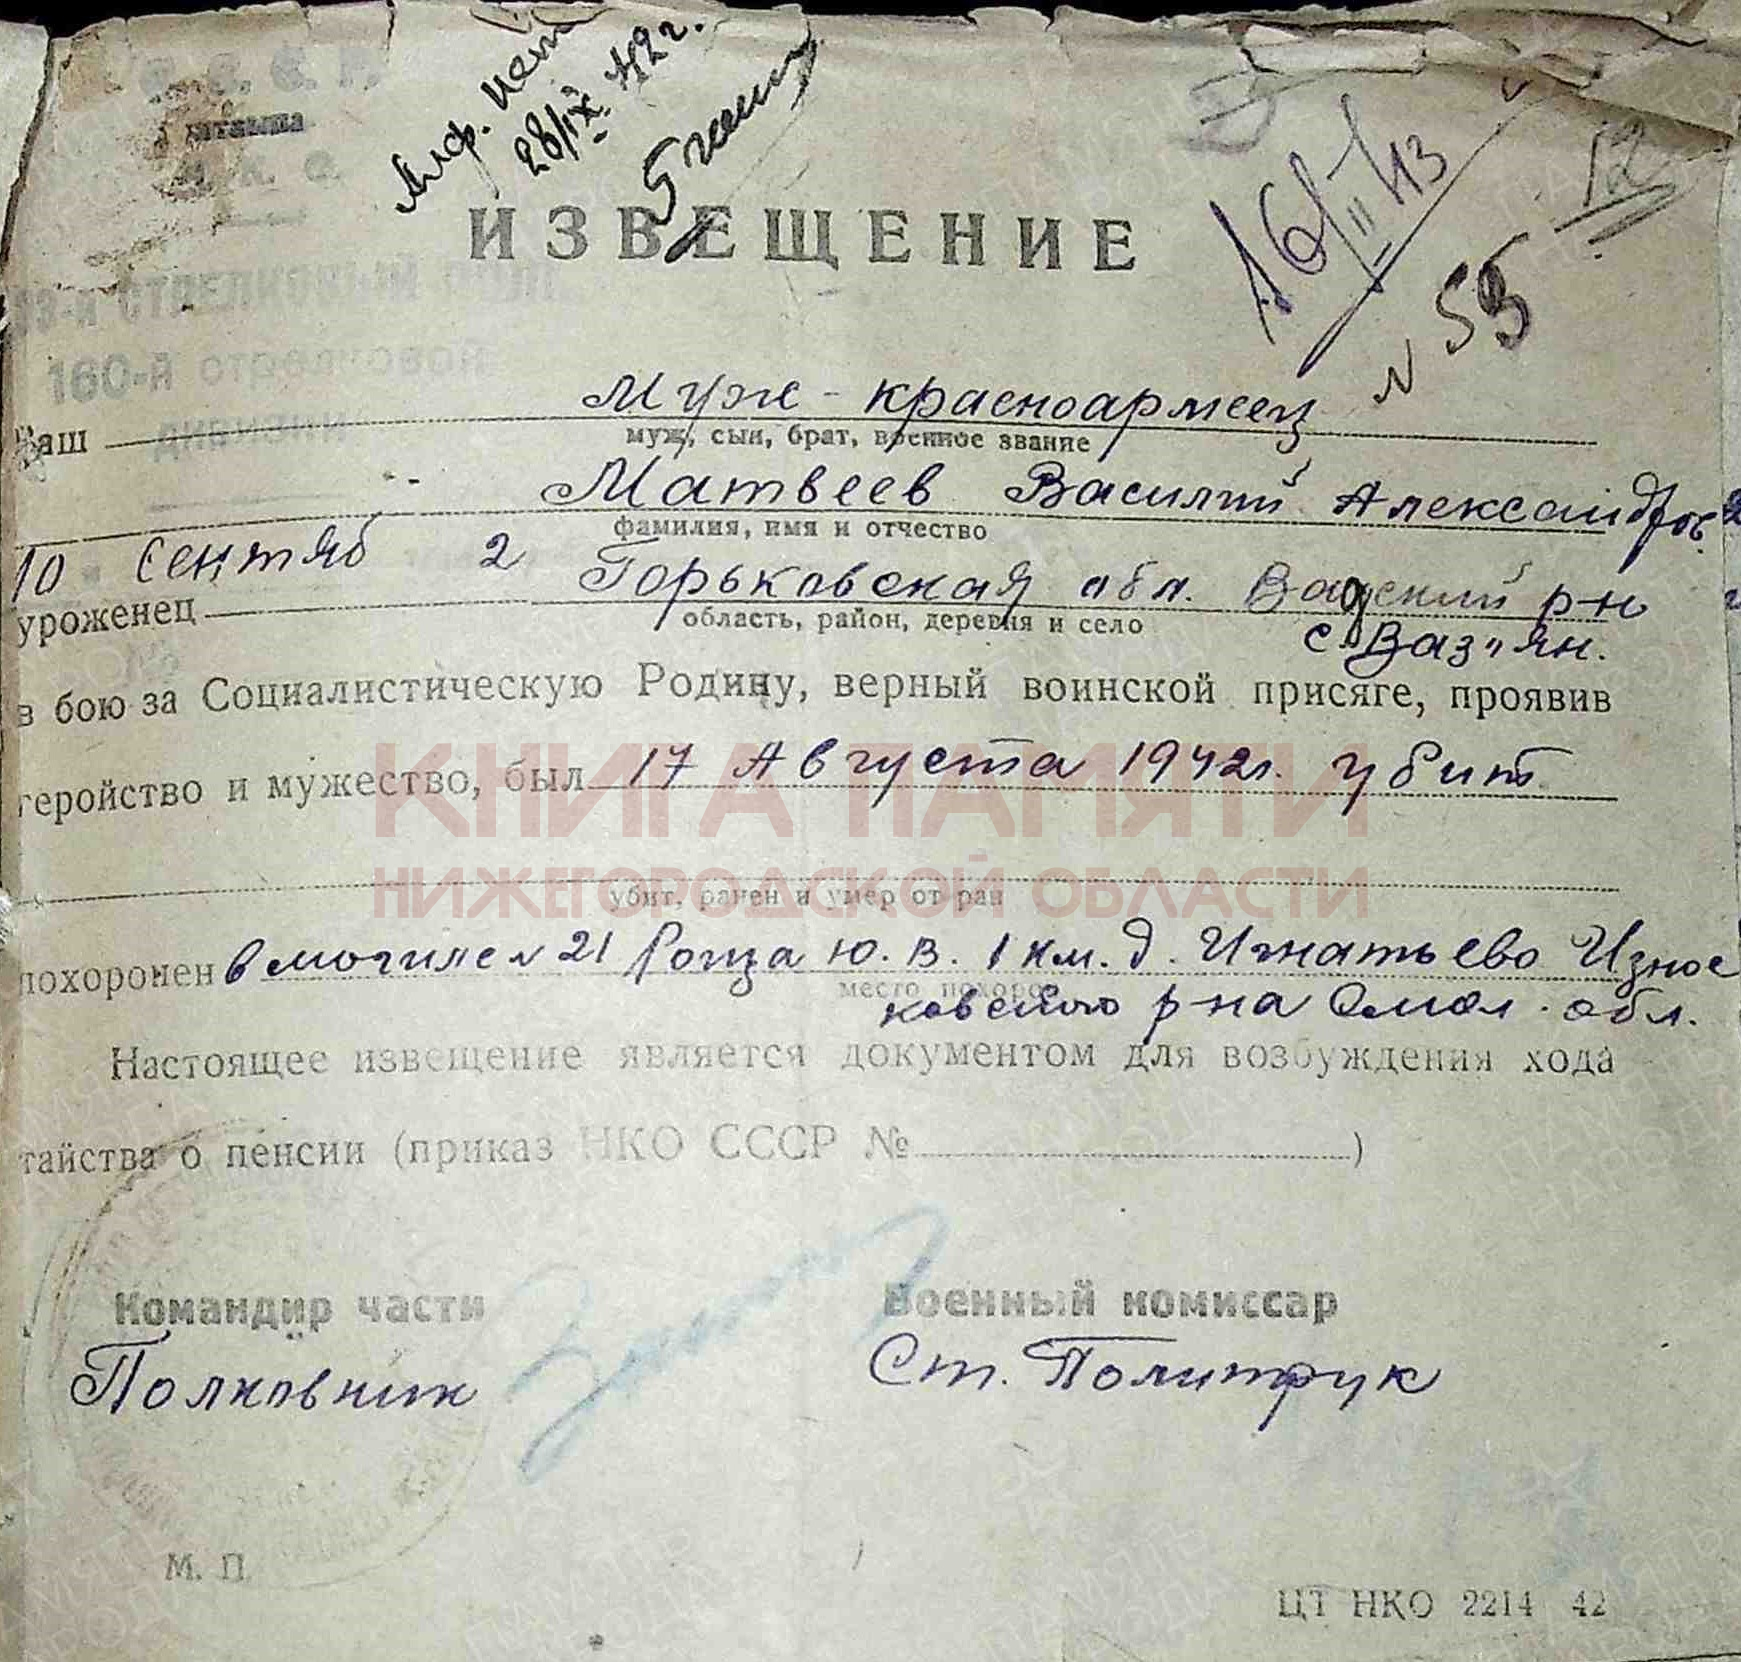 28/IX 42 г.
ИЗВЕЩЕНИЕ
16/II 43
N 55
12
160-й стрелковой
дивизии
Ваш Муж - красноармеец
муж, сын, брат, военное звание
Матвеев Василий Александров.
фамилия, имя и отчество
10 Сентяб 2
уроженец Горьковская обл. Вадский р-н
область, район, деревня и село
с.Ваз"ян.
в бою за Социалистическую Родину, верный воинской присяге, проявив
геройство и мужество, был 17 Августа 1942г. убит
КНИГА ПАМЯТИ
НИЖЕГОРОДСКОЙ ОБЛАСТИ
убит, ранен и умер от ран
похоронен в могиле N 21 Роща Ю. В. 1 км. д. Игнатьево Износ
место похорон
ковского р-на Смол. обл.
Настоящее извещение является документом для возбуждения хода
тайства о пенсии (приказ НКО СССР № )
Командир части
Военный комиссар
Полковник
Ст. Политрук
М. П.
ЦТ НКО 2214 42